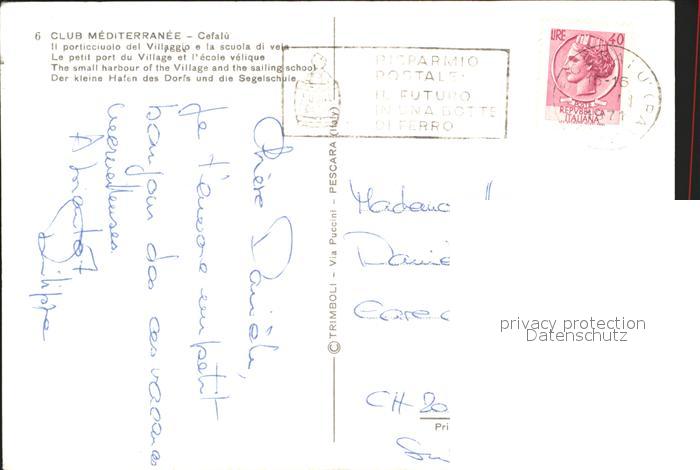 6 CLUB MÉDITERRANÉE – Cefalù
Il porticciuolo del Villaggio e la scuola di vela
Le petit port du Village et l'école vélique
The small harbour of the Village and the sailing school
Der kleine Hafen des Dorfs und die Segelschule
RISPARMIO
POSTALE:
IL FUTURO
IN UNA BOTTE
DI FERRO
LIRE 40
POSTE
REPVBBLICA
ITALIANA
Chère Danièle,
Je t'envoie un petit
bonjour de ces vacances
merveilleuses.
A bientôt
Philippe
© TRIMBOLI – Via Puccini – PESCARA (Italy)
Madame
Daniè
CH-20
Pri
privacy protection
Datenschutz